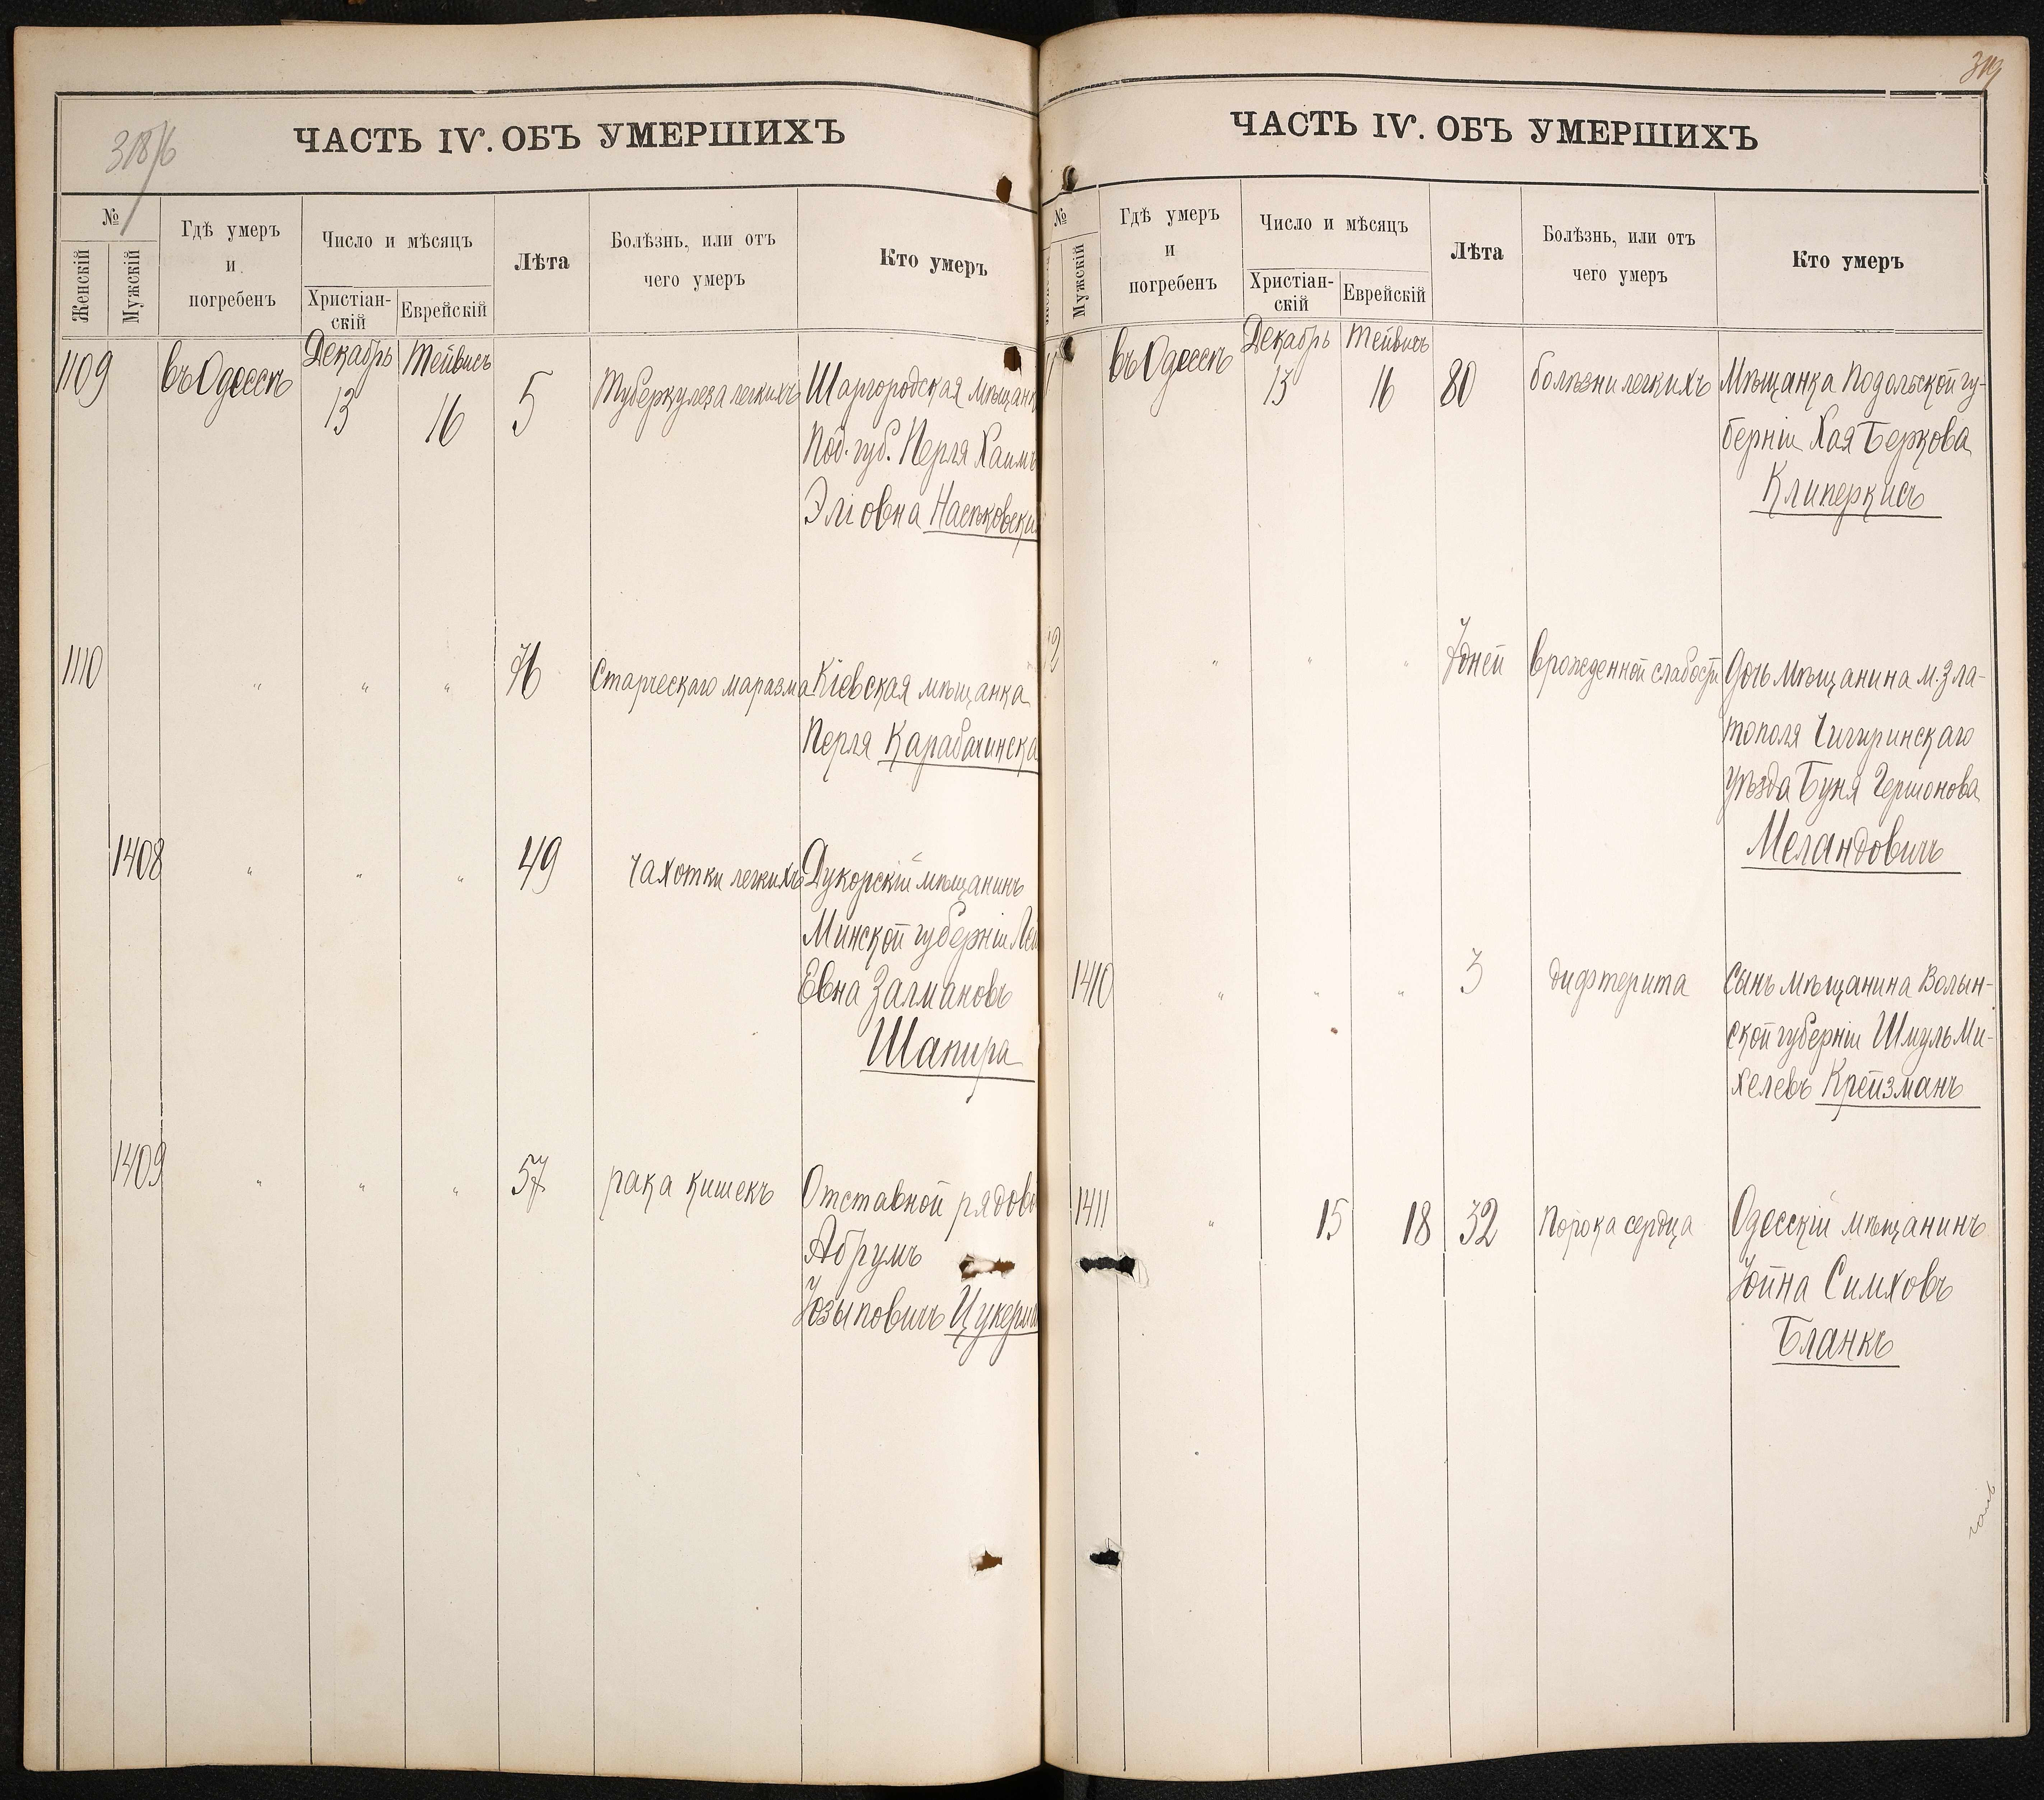 ЧАСТЬ IV. ОБЪ УМЕРШИХЪ
№
Женскій
Мужскій
Гдѣ умеръ
и
погребенъ
Число и мѣсяцъ
Христіан-
скій
Еврейскій
Лѣта
Болѣзнь, или отъ
чего умеръ
Кто умеръ
1109 въ Одессѣ Декабрь 13 Тейвисъ 16 5 Туберкулеза легкихъ Шаргородская мѣщанк
Под. губ. Перля Хаимъ
Эліовна
1110 " " " 76 Старческаго маразма Кіевская мѣщанка
Перля Карабачинска
1408 " " " 49 Чахотки легкихъ Дукорскій мѣщанинъ
Минской губерніи
Евна Залмановъ
Шапира
1409 " " " 57 рака кишекъ Отставной рядово
Абрумъ
Іозыповичъ Цукерм
319
ЧАСТЬ IV. ОБЪ УМЕРШИХЪ
№
Мужскій
Гдѣ умеръ
и
погребенъ
Число и мѣсяцъ
Христіан-
скій
Еврейскій
Лѣта
Болѣзнь, или отъ
чего умеръ
Кто умеръ
въ Одессѣ Декабрь 13 Тейвисъ 16 80 болѣзни легкихъ Мѣщанка Подольской гу-
берніи Хая Беркова
Клиперкисъ
" " " 7 дней врожденной слабости Дочь мѣщанина м. Зла-
тополя Чигиринскаго
уѣзда Буня Гершонова
Меландовичъ
1410 " " " 3 дифтерита Сынъ мѣщанина Волын-
ской губерніи Шмуль Ми-
хелевъ Крейзманъ
1411 " 15 18 32 Порока сердца Одесскій мѣщанинъ
Іойна Симховъ
Бланкъ